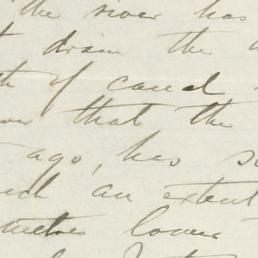 the river has
drain the
of canal
that the
ago, has
an extent
lower